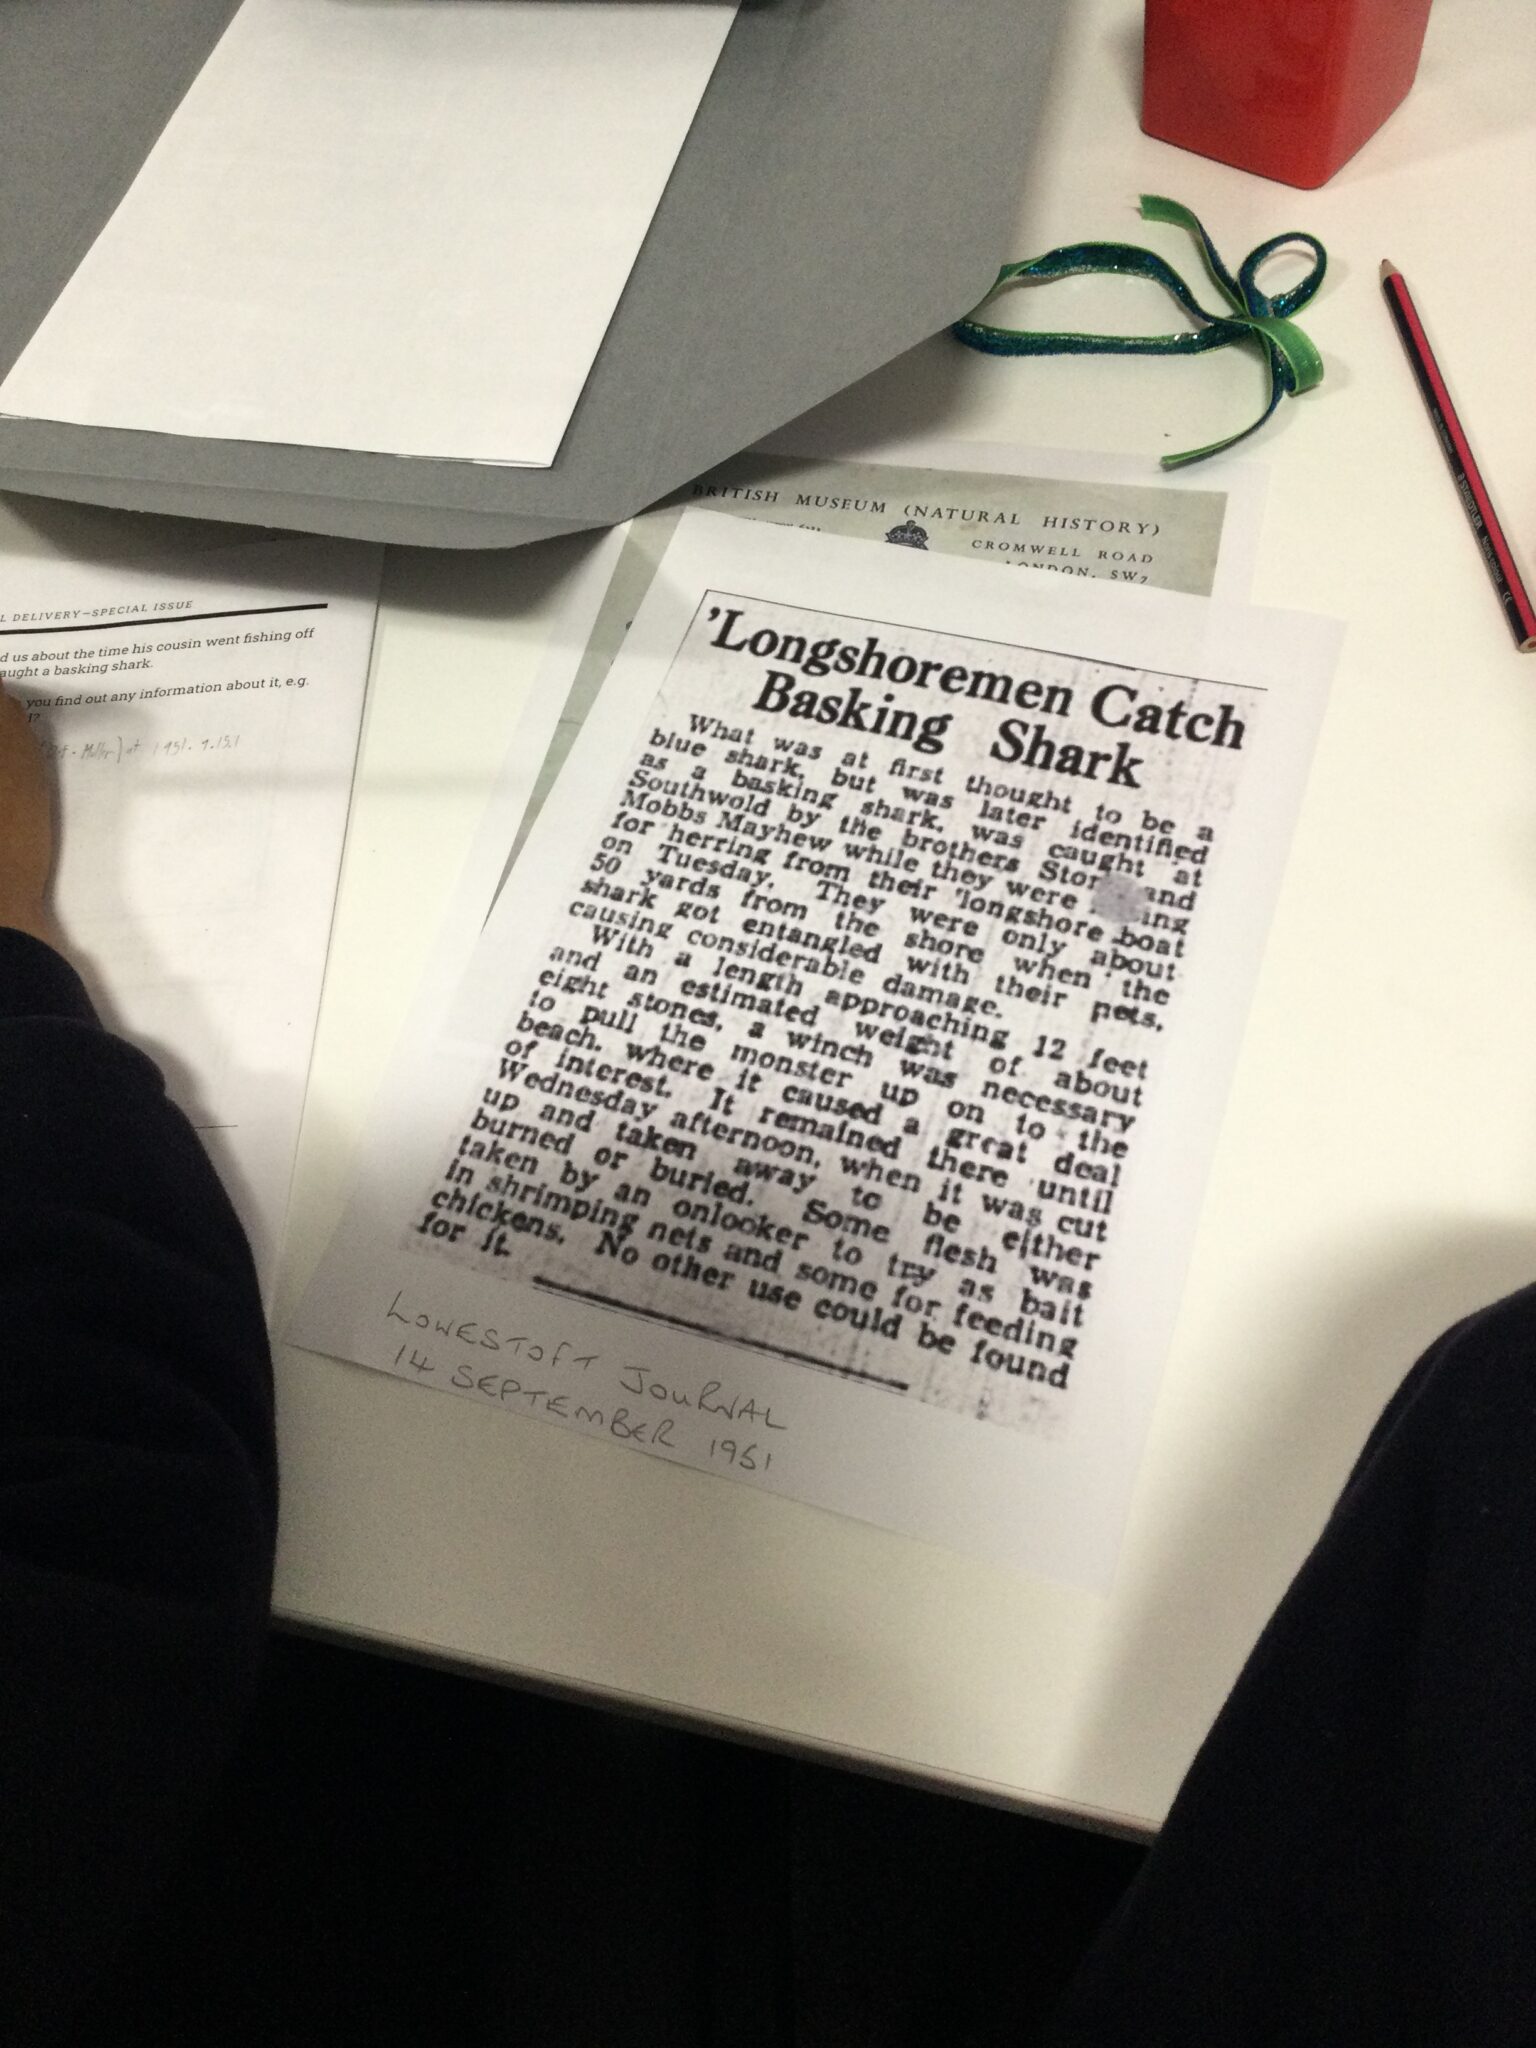 BRITISH MUSEUM (NATURAL HISTORY)
CROMWELL ROAD
LONDON, SW7
L DELIVERY—SPECIAL ISSUE
d us about the time his cousin went fishing off
aught a basking shark.
you find out any information about it, e.g.
d?
at 1951.9.15.1
'Longshoremen Catch
Basking Shark
What was at first thought to be a
blue shark, but was later identified
as a basking shark, was caught at
Southwold by the brothers Stor and
Mobbs Mayhew while they were ing
for herring from their 'longshore boat
on Tuesday. They were only about
50 yards from the shore when the
shark got entangled with their nets,
causing considerable damage.
With a length approaching 12 feet
and an estimated weight of about
eight stones, a winch was necessary
to pull the monster up on to the
beach, where it caused a great deal
of interest. It remained there until
Wednesday afternoon, when it was cut
up and taken away to be either
burned or buried. Some flesh was
taken by an onlooker to try as bait
in shrimping nets and some for feeding
chickens. No other use could be found
for it.
LOWESTOFT JOURNAL
14 SEPTEMBER 1951
STAEDTLER Noris colour